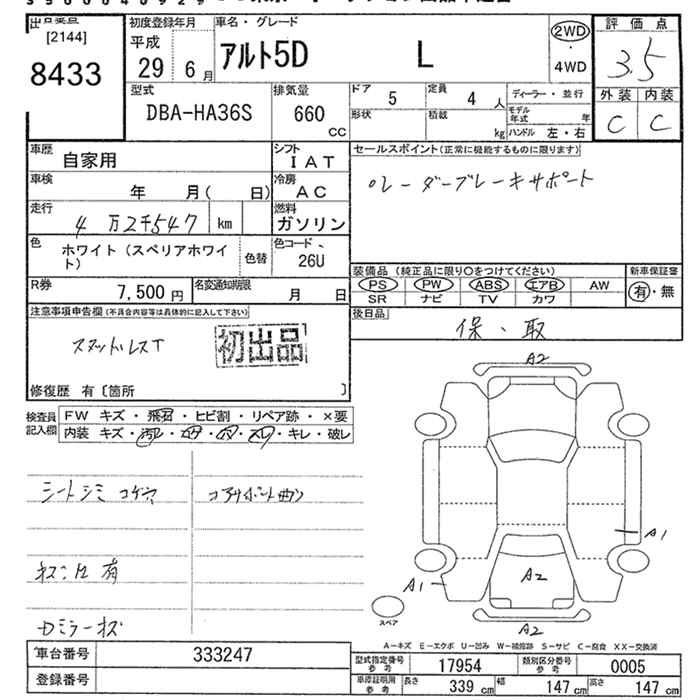 出品番
[2144]
8433
初度登録年月
平成
29 6月
車名・グレード
アルト5D L
2WD
・
4WD
評価点
3.5
外装 内装
C C
型式
DBA-HA36S
排気量
660
CC
ドア 5
定員 4 人
形状
積載 kg
ディーラー・並行
モデル年式 年
ハンドル 左・右
車歴 自家用
シフト IAT
車検 年 月( 日)
冷房 AC
走行 4万2千547 km
燃料 ガソリン
色 ホワイト(スペリアホワイト)
色替
色コード 26U
R券 7,500円
名変通知期限 月 日
セールスポイント(正常に機能するものに限ります)
レーダーブレーキサポート
装備品(純正品に限り○をつけてください)
PS PW ABS エアB AW
SR ナビ TV カワ
新車保証書
有・無
後日品
保、取
注意事項申告欄(不具合内容等は具体的に記入して下さい)
スタットレスT
初出品
修復歴 有〔箇所 〕
検査員記入欄
FW キズ・飛石・ヒビ割・リペア跡・×要
内装 キズ・汚レ・コゲ・穴・スレ・キレ・破レ
シートシミ コゲ穴
コアサポート曲り
ネジ穴有
Dミラーキズ
A2
A1
A1
A2
A2
スペア
A-キズ E-エクボ U-凹み W-補修跡 S-サビ C-腐食 XX-交換済
車台番号 333247
登録番号
型式指定番号参考 17954
類別区分番号参考 0005
車庫証明用参考 長さ 339cm 幅 147cm 高さ 147cm